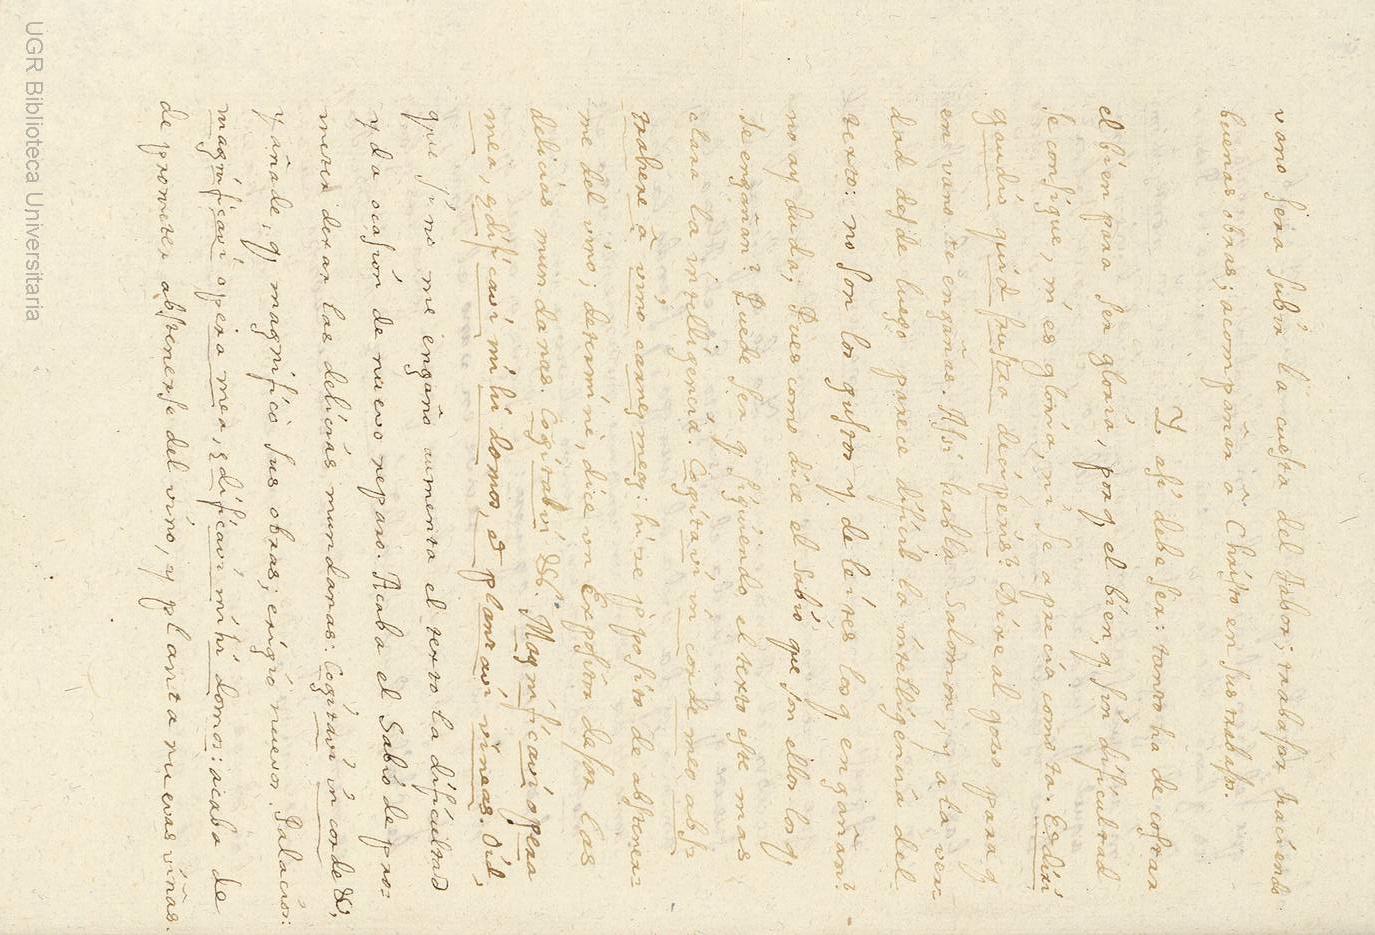 vano sera subir la cuesta del Tabor; trabajar haciendo
buenas obras; acompañar a Christo en sus trabajos.
Y asi debe ser: tanto ha de costar
el bien para ser gloria, porq el bien q sin dificultad
se consigue, ni es gloria, ni se aprecia como tal. Et dixi
gaudio quid frustra deciperis? Dixe al gozo para q
en vano te engañas. Assi habla Salomon, y a la ver-
dad desde luego parece dificil la inteligencia del
texto: no son los gustos y deleites los q engañan?
no ay duda; Pues como dice el sabio que son ellos los q
se engañan? Puede ser q siguiendo el texto este mas
clara la intelligencia. Cogitavi in corde meo abs-
trahere à vino carnem meã: hize pposito de abstener-
me del vino; determinè, dice un Expositor dejar las
delicias mundanas. Cogitavi &c. Magnificavi opera
mea, edificavi mihi domos, et plantavi vineas. O îl,
que si no me engaño aumenta el texto la dificultad
y da ocasión de nuevo reparo. Acaba el Sabio de pro-
meter dexar las delicias mundanas: Cogitavi in corde &c,
y añade, q magnificò sus obras; erigiò nuevos Palacios:
magnificavi opera mea, edificavi mihi domos: acaba de
de prometer abstenerse del vino, y planta nuevas viñas.
UGR Biblioteca Universitaria